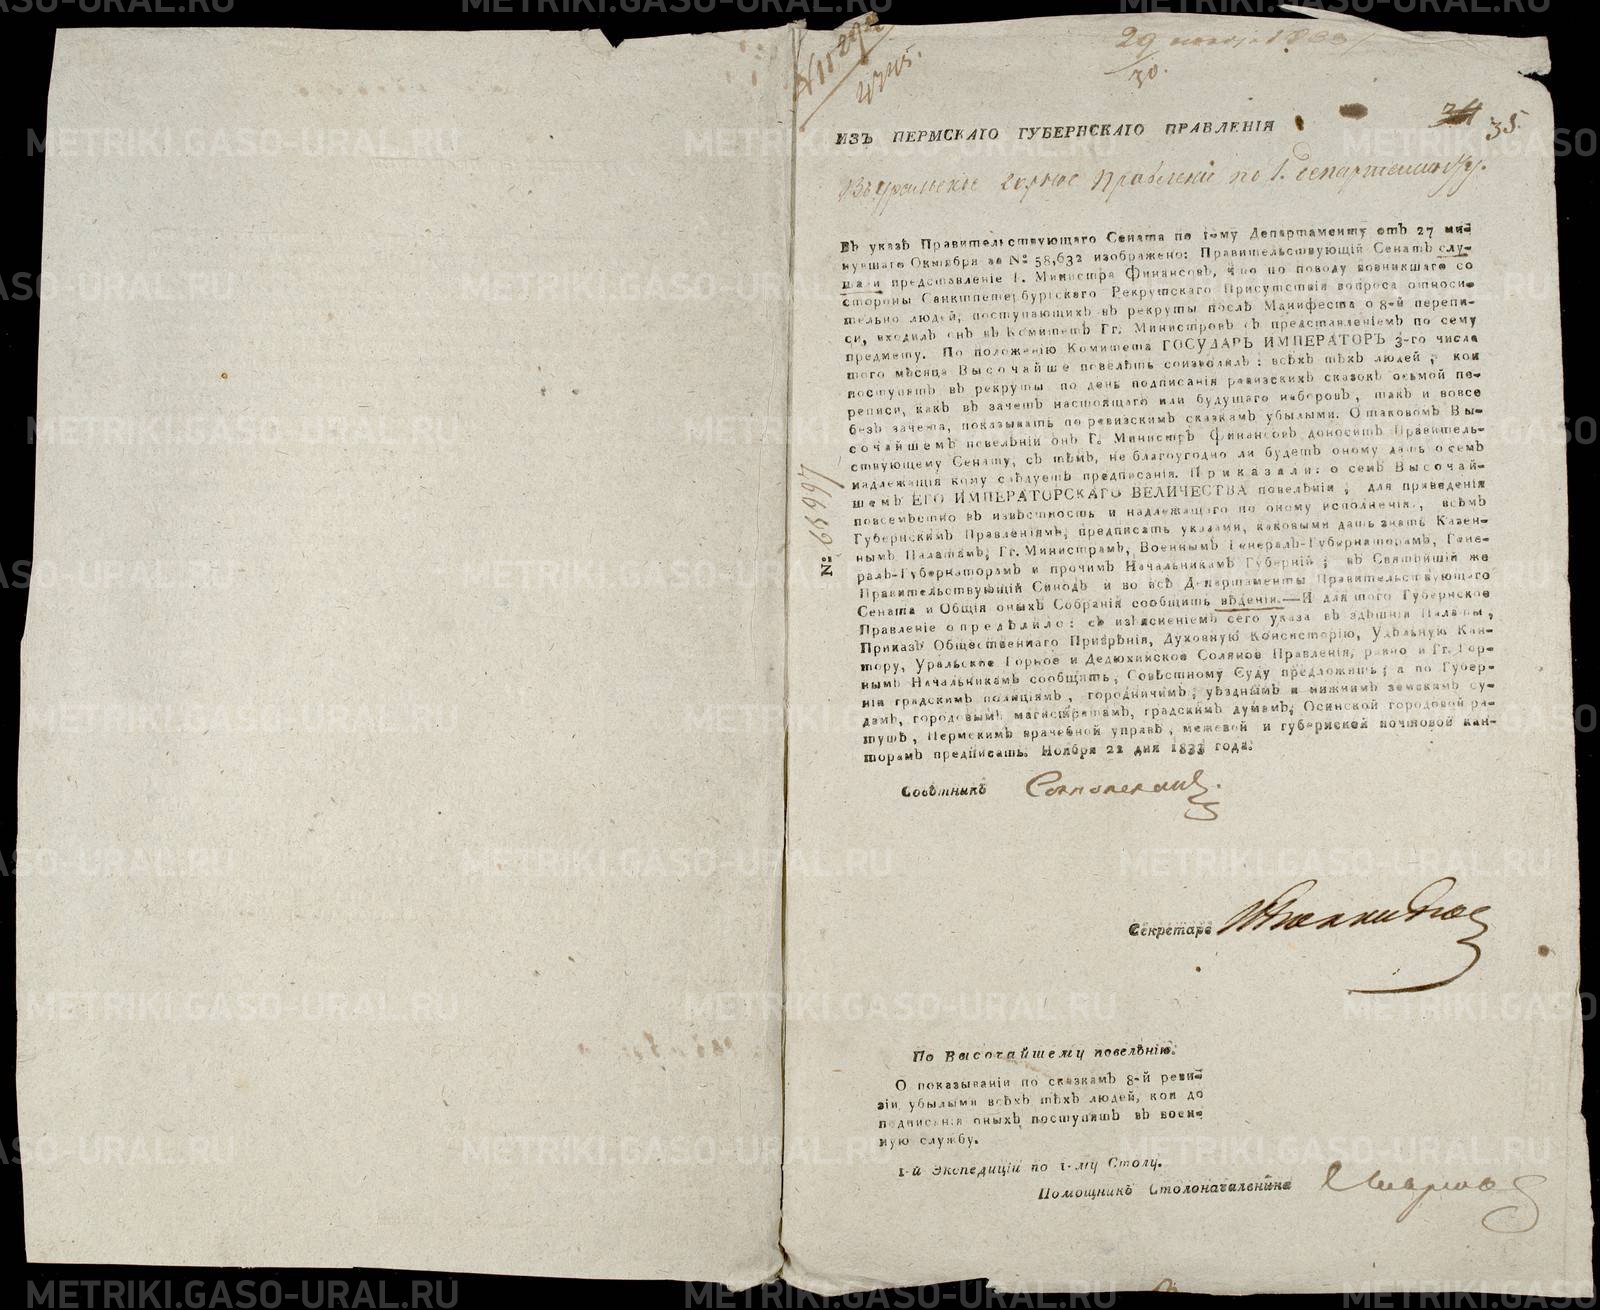 29
30.
35.
ИЗЪ ПЕРМСКАГО ГУБЕРНСКАГО ПРАВЛЕНІЯ
Въ Уральское горное Правленіе по 1. департаменту.
Въ указѣ Правительствующаго Сената по 1-му Департаменту отъ 27 ми-
нувшаго Октября за № 58,632 изображено: Правительствующій Сенатъ слу-
шали представленіе Г. Министра Финансовъ, что по поводу возникшаго со
стороны Санктпетербургскаго Рекрутскаго Присутствія вопроса относи-
тельно людей, поступающихъ въ рекруты послѣ Манифеста о 8-й перепи-
си, входилъ онъ въ Комитетъ Гг. Министровъ съ представленіемъ по сему
предмету. По положенію Комитета ГОСУДАРЬ ИМПЕРАТОРЪ 3-го числа
того мѣсяца Высочайше повелѣть соизволилъ: всѣхъ тѣхъ людей, кои
поступятъ въ рекруты по день подписанія ревизскихъ сказокъ осьмой пе-
реписи, какъ въ зачетъ настоящаго или будущаго наборовъ, такъ и вовсе
безъ зачета, показывать по ревизскимъ сказкамъ убылыми. О таковомъ Вы-
сочайшемъ повелѣніи онъ Г. Министръ Финансовъ доноситъ Правитель-
ствующему Сенату, съ тѣмъ, не благоугодно ли будетъ оному дать о семъ
надлежащія кому слѣдуетъ предписанія. Приказали: о семъ Высочай-
шемъ ЕГО ИМПЕРАТОРСКАГО ВЕЛИЧЕСТВА повелѣніи, для приведенія
повсемѣстно въ извѣстность и надлежащаго по оному исполненія, всѣмъ
Губернскимъ Правленіямъ, предписать указами, каковыми дать знать Казен-
нымъ Палатамъ, Гг. Министрамъ, Военнымъ Генералъ-Губернаторамъ, Гене-
ралъ-Губернаторамъ и прочимъ Начальникамъ Губерній; въ Святѣйшій же
Правительствующій Синодъ и во всѣ Департаменты Правительствующаго
Сената и Общія оныхъ Собранія сообщить вѣденія.—И для того Губернское
Правленіе опредѣлило: съ изъясненіемъ сего указа въ здѣшнія Палаты,
Приказъ Общественнаго Призрѣнія, Духовную Консисторію, Удѣльную Кан-
тору, Уральское Горное и Дедюхинское Соляное Правленія, равно и Гг. Гор-
нымъ Начальникамъ сообщить, Совѣстному Суду предложить; а по Губер-
ніи градскимъ полиціямъ, городничимъ, уѣзднымъ и нижнимъ земскимъ су-
дамъ, городовымъ магистратамъ, градскимъ думамъ, Осинской городовой ра-
тушѣ, Пермскимъ врачебной управѣ, межевой и губернской почтовой кан-
торамъ предписать. Ноября 22 дня 1833 года.
№
Совѣтникъ
Секретарь
По Высочайшему повелѣнію.
О показываніи по сказкамъ 8-й реви-
зіи убылыми всѣхъ тѣхъ людей, кои до
подписанія оныхъ поступятъ въ воен-
ную службу.
1-й Экспедиціи по 1-му Столу.
Помощникъ Столоначальника